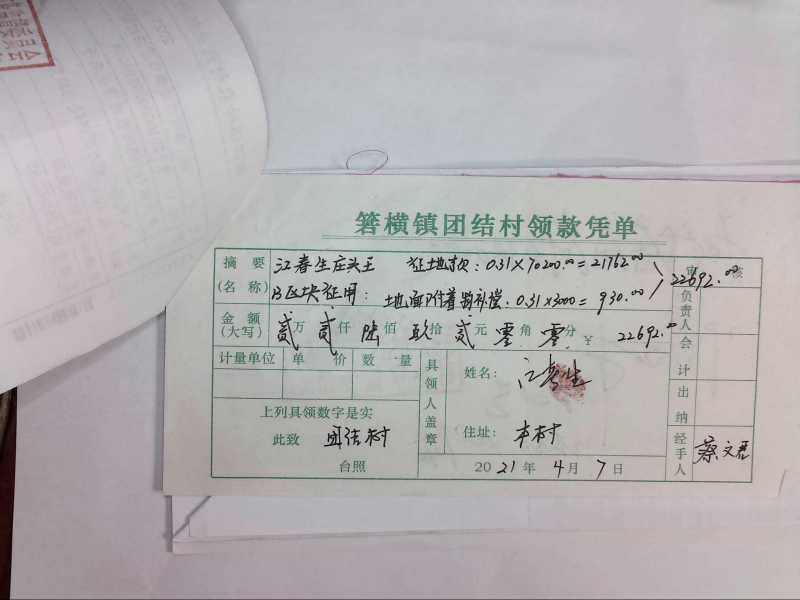 箬横镇团结村领款凭单
摘要 江春生庄头王 征地款：0.31×70200.00=21762.00 22692.00 审核
(名称) B区块征用： 地面附着物补偿：0.31×3000=930.00 负责人
金额(大写) 贰万贰仟陆佰玖拾贰元零角零分 ￥22692.00
计量单位 单价 数量 具领人盖章 姓名：江春生 会计
上列具领数字是实 出纳
此致 团结村 住址：本村
台照 2021年4月7日 经手人 蔡文君